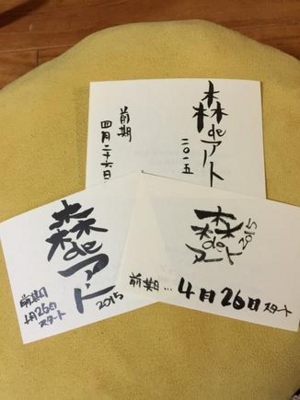 森deアート
二〇一五
前期
四月二十六日
森deアート
2015
前期
4月26日
スタート
森deアート
2015
前期… 4月26日スタート